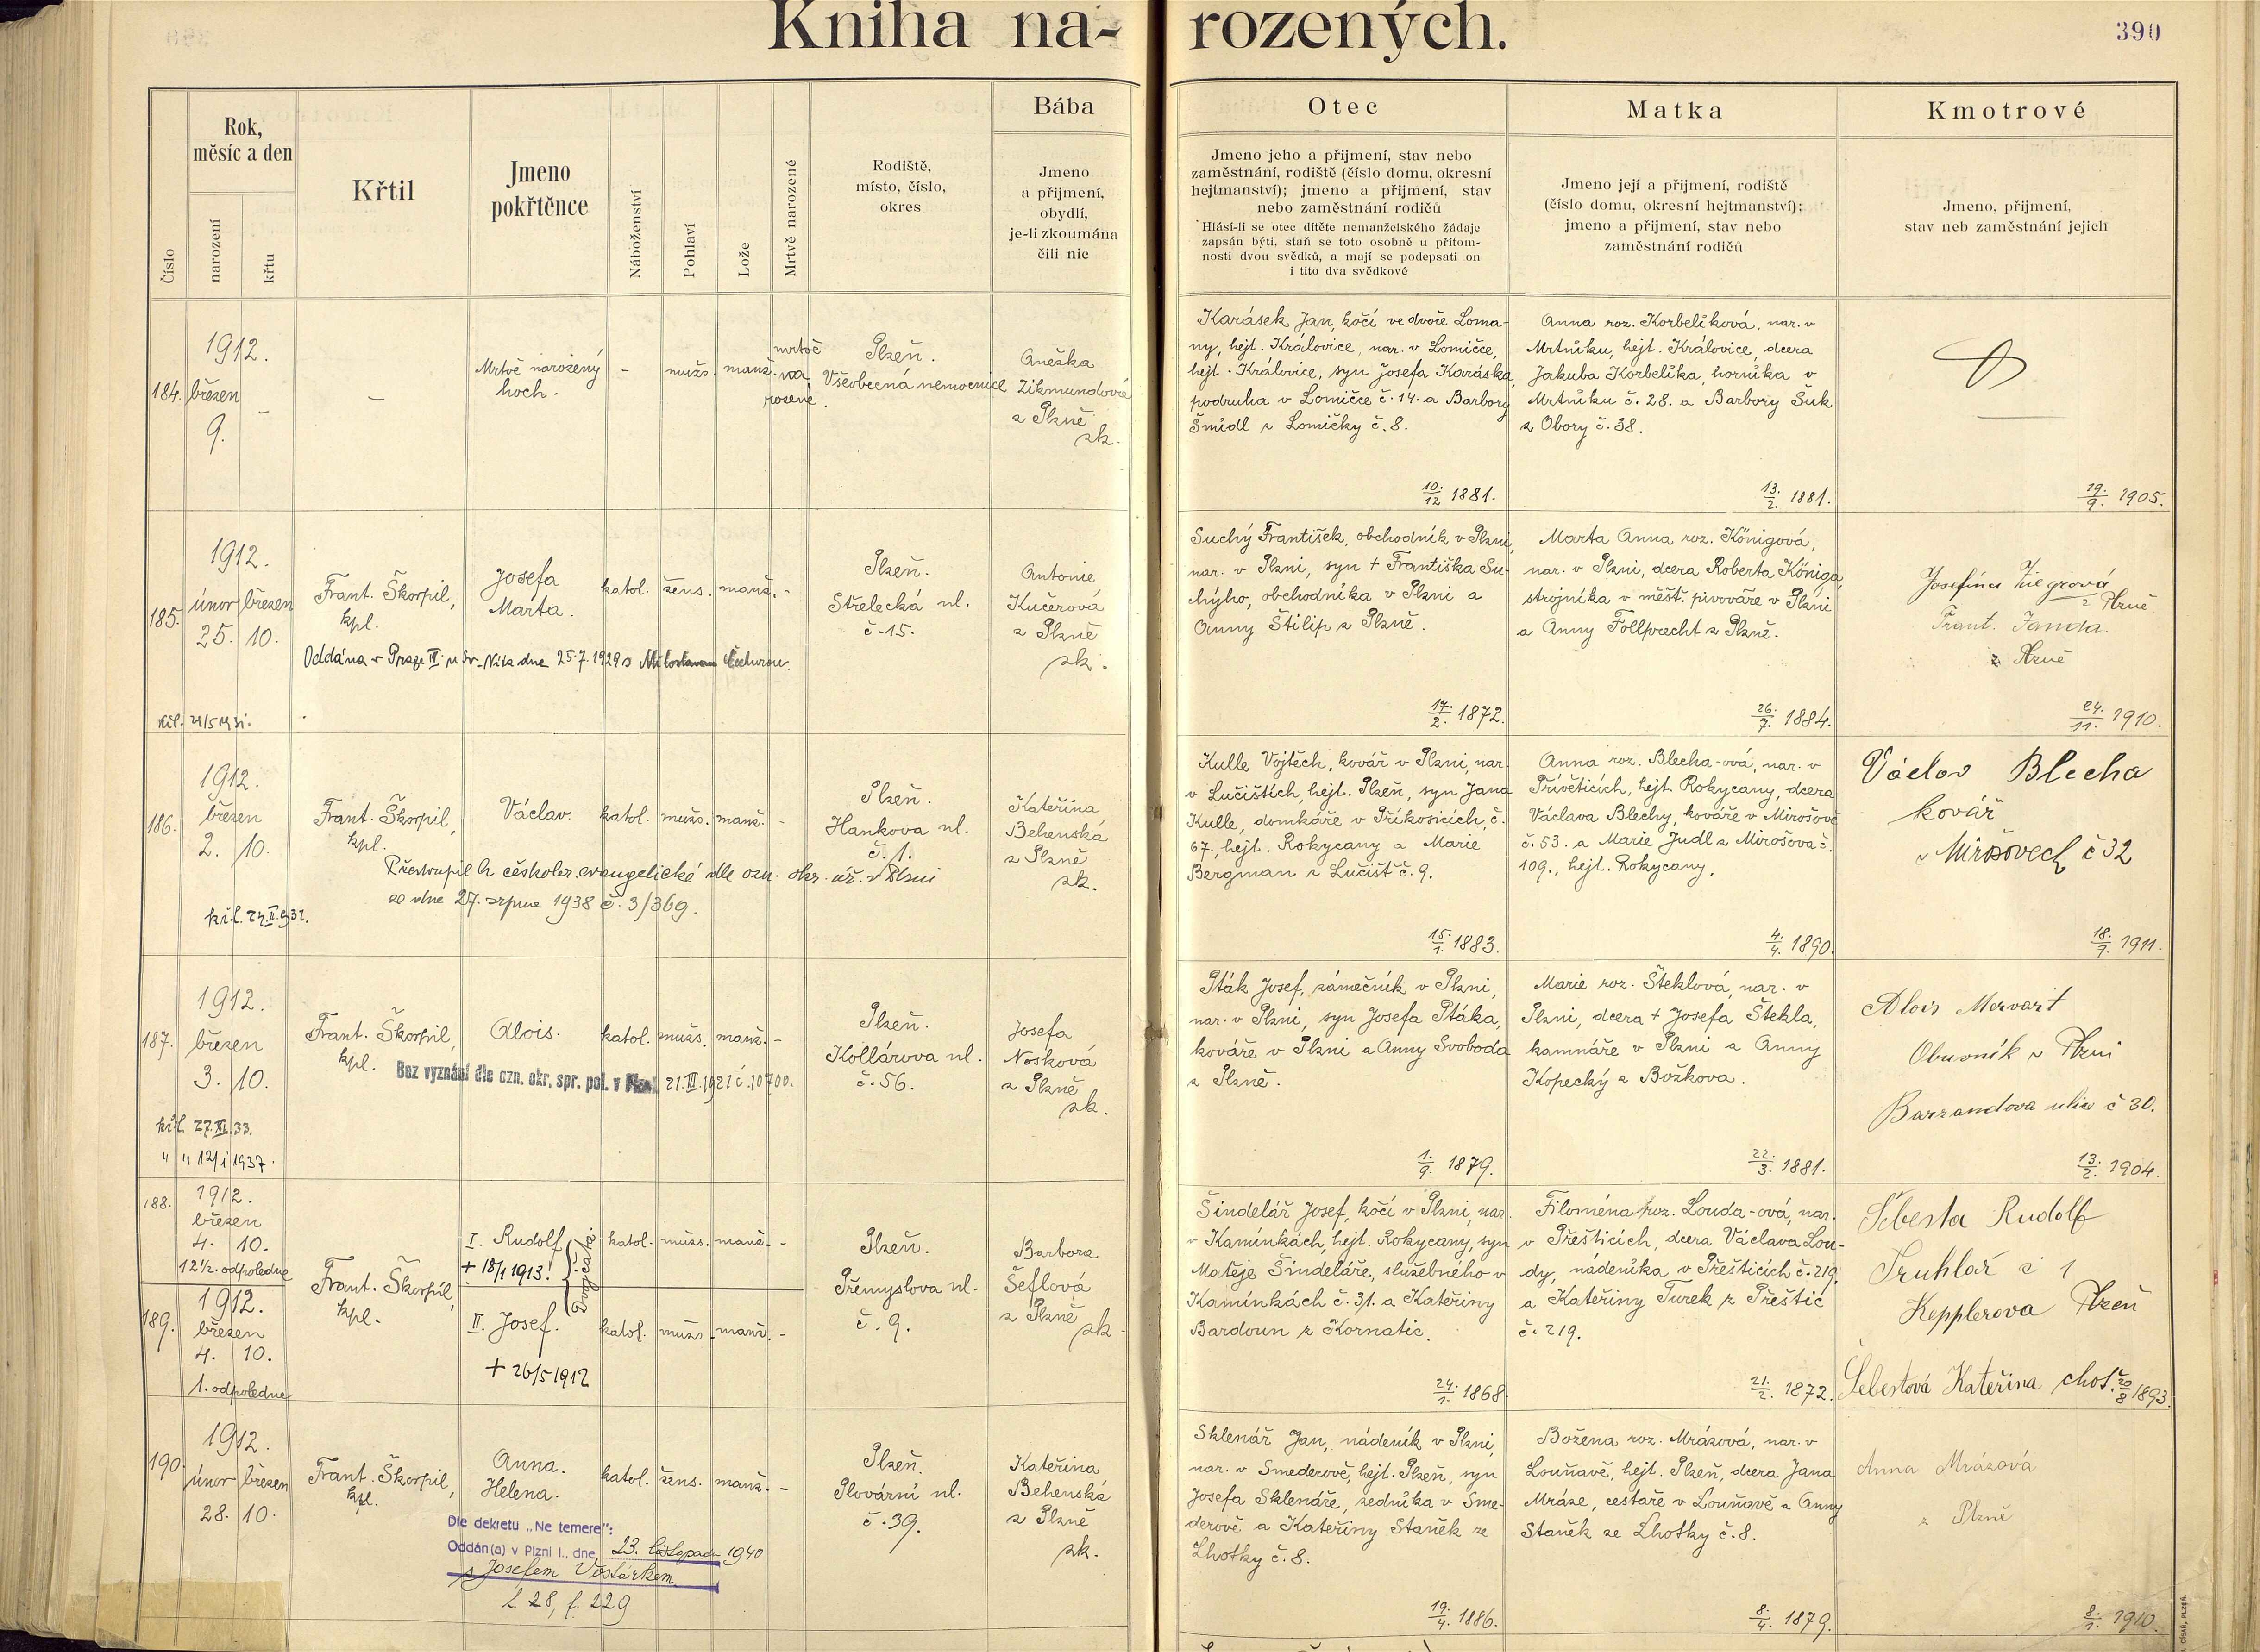 Kniha na- rozených.
390
Číslo
Rok,
měsíc a den
narození
křtu
Křtil
Jmeno
pokřtěnce
Náboženství
Pohlaví
Lože
Mrtvě narozené
Rodiště,
místo, číslo,
okres
Bába
Jmeno
a přijmení,
obydlí,
je-li zkoumána
čili nic
Otec
Jmeno jeho a přijmení, stav nebo
zaměstnání, rodiště (číslo domu, okresní
hejtmanství); jmeno a přijmení, stav
nebo zaměstnání rodičů
Hlásí-li se otec dítěte nemanželského žádaje
zapsán býti, staň se toto osobně u přítom-
nosti dvou svědků, a mají se podepsati on
i tito dva svědkové
Matka
Jmeno její a přijmení, rodiště
(číslo domu, okresní hejtmanství);
jmeno a přijmení, stav nebo
zaměstnání rodičů
Kmotrové
Jmeno, přijmení,
stav neb zaměstnání jejich
184.
1912.
březen
9. -
-
Mrtvě narozený
hoch.
-
mužs.
manž.
mrtvě
na
rozené.
Plzeň.
Všeobecná nemocnice
Anežka
Zikmundová
z Plzně
zk.
Karásek Jan, kočí ve dvoře Loma-
ny, hejt. Královice, nar. v Lomičce,
hejt. Královice, syn Josefa Karáska,
podruha v Lomičce č. 14. a Barbory
Šmídl z Lomičky č. 8.
10./12 1881.
Anna roz. Korbelíková, nar. v
Mrtníku, hejt. Královice, dcera
Jakuba Korbelíka, horníka v
Mrtníku č. 28. a Barbory Šuk
z Obory č. 38.
13./2. 1881.
19./9. 1905.
185.
1912.
únor březen
25. 10.
Frant. Škorpil,
kpl.
Josefa
Marta.
katol. žens. manž. -
Oddána v Praze III u sv. Víta dne 25.7.1929 s Miloslavem Čečurou.
Plzeň.
Střelecká ul.
č. 15.
Antonie
Kučerová
z Plzně
zk.
Suchý František, obchodník v Plzni,
nar. v Plzni, syn + Františka Su-
chýho, obchodníka v Plzni a
Anny Štilip z Plzně.
17./2. 1872.
Marta Anna roz. Königová,
nar. v Plzni, dcera Roberta Königa,
strojníka v měšť. pivováře v Plzni
a Anny Follprecht z Plzně.
26./7. 1884.
Josefina
z Plzně
Frant. Janda.
z Plzně
24./11. 1910.
186.
1912.
březen
2. 10.
Frant. Škorpil,
kpl.
Václav.
katol. mužs. manž. -
Přestoupil k českobr. evangelické dle ozn. okr. úř. v Plzni
ze dne 27. srpna 1938 č. 3/369.
Plzeň.
Hankova ul.
č. 1.
Kateřina
Behenská
z Plzně
zk.
Kulle Vojtěch, kovář v Plzni, nar.
v Lučištích, hejt. Plzeň, syn Jana
Kulle, domkáře v Příkosicích, č.
67., hejt. Rokycany a Marie
Bergman z Lučišť č. 9.
15./1. 1883.
Anna roz. Blecha-ová, nar. v
Přívěticích, hejt. Rokycany, dcera
Václava Blechy, kováře v Mirošově
č. 53. a Marie Judl z Mirošova č.
109., hejt. Rokycany.
4./4. 1890.
Václav Blecha
kovář
v Mirošovech č 32
18./9. 1911.
187.
1912.
březen
3. 10.
Frant. Škorpil,
kpl.
Alois.
katol. mužs. manž. -
Bez vyznání dle ozn. okr. spr. pol. v Plzni 21.III.1921 č. 10700.
Plzeň.
Kollárova ul.
č. 56.
Josefa
Nosková
z Plzně
zk.
Pták Josef, zámečník v Plzni,
nar. v Plzni, syn Josefa Ptáka,
kováře v Plzni a Anny Svoboda
z Plzně.
1./9. 1879.
Marie roz. Šteklová, nar. v
Plzni, dcera + Josefa Štekla,
kamnáře v Plzni a Anny
Kopecký z Božkova.
22./3. 1881.
Alois Morvart
Obuvník v Plzni
Barrandova ulice č 30.
13./2. 1904.
křl. 27.XI.33.
" " 12/1 1937.
188.
1912.
březen
4. 10.
12½. odpoledne
Frant. Škorpil,
kpl.
I. Rudolf
+ 18/1 1913!
Dvojčata
katol. mužs. manž. -
Plzeň.
Přemyslova ul.
č. 9.
Barbora
Šeflová
z Plzně
zk.
189.
1912.
březen
4. 10.
1. odpoledne
II. Josef.
+ 26/5 1912
katol. mužs. manž. -
Šindelář Josef, kočí v Plzni, nar.
v Kamínkách, hejt. Rokycany, syn
Matěje Šindeláře, služebného v
Kamínkách č. 31. a Kateřiny
Bardoun z Kornatic.
24./1. 1868.
Filoména roz. Louda-ová, nar.
v Přešticích, dcera Václava Lou-
dy, nádeníka v Přešticích č. 219.
a Kateřiny Turek z Přeštic
č. 219.
21./2. 1872.
Šebesta Rudolf
Truhlář č 1
Kepplerova Plzeň
Šebestová Kateřina choť.
20/8 1893.
190.
1912.
únor březen
28. 10.
Frant. Škorpil,
kpl.
Anna.
Helena.
katol. žens. manž. -
Dle dekretu „Ne temere":
Oddán(a) v Plzni I., dne 23. listopadu 1940
s Josefem Vostárkem
l. 28, f. 229
Plzeň.
Plovární ul.
č. 39.
Kateřina
Behenská
z Plzně
zk.
Sklenář Jan, nádeník v Plzni,
nar. v Smederově, hejt. Plzeň, syn
Josefa Sklenáře, zedníka v Sme-
derově a Kateřiny Staněk ze
Lhotky č. 8.
19./4. 1886.
Božena roz. Mrázová, nar. v
Louňavě, hejt. Plzeň, dcera Jana
Mráze, cestáře v Louňově a Anny
Staněk ze Lhotky č. 8.
8./4. 1879.
Anna Mrázová
z Plzně
8./1. 1910.